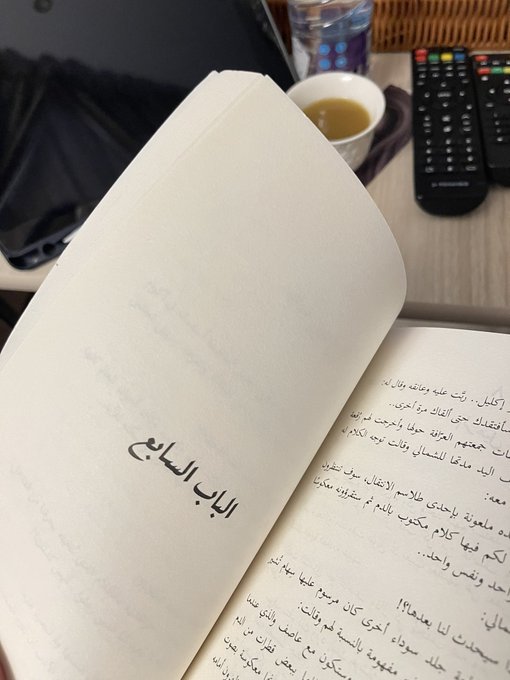 الباب السابع
إكليل.. ربَّت عليه وعانقه وقال له:
سأفتقدك حتى ألقاك مرة أخرى..
جمعتهم العرَّافة حولها وأخرجت لهم
اليد مدتها للشمالي وقالت توجه الكلام له
معه:
ملعونة بإحدى طلاسم الانتقال، سوف تنتظرون
لكم فيها كلام مكتوب بالدم ثم ستقرؤونه معكوسًا
واحد ونفس واحد..
سيحدث لنا بعدها؟!
جلد سوداء أخرى كان مرسوم عليها سهام تُشير
مفهومة بالنسبة لهم وقالت:
وستكون مع عاصف والذي عندما
بعض قطرات من الدم
معكوسة بصوت